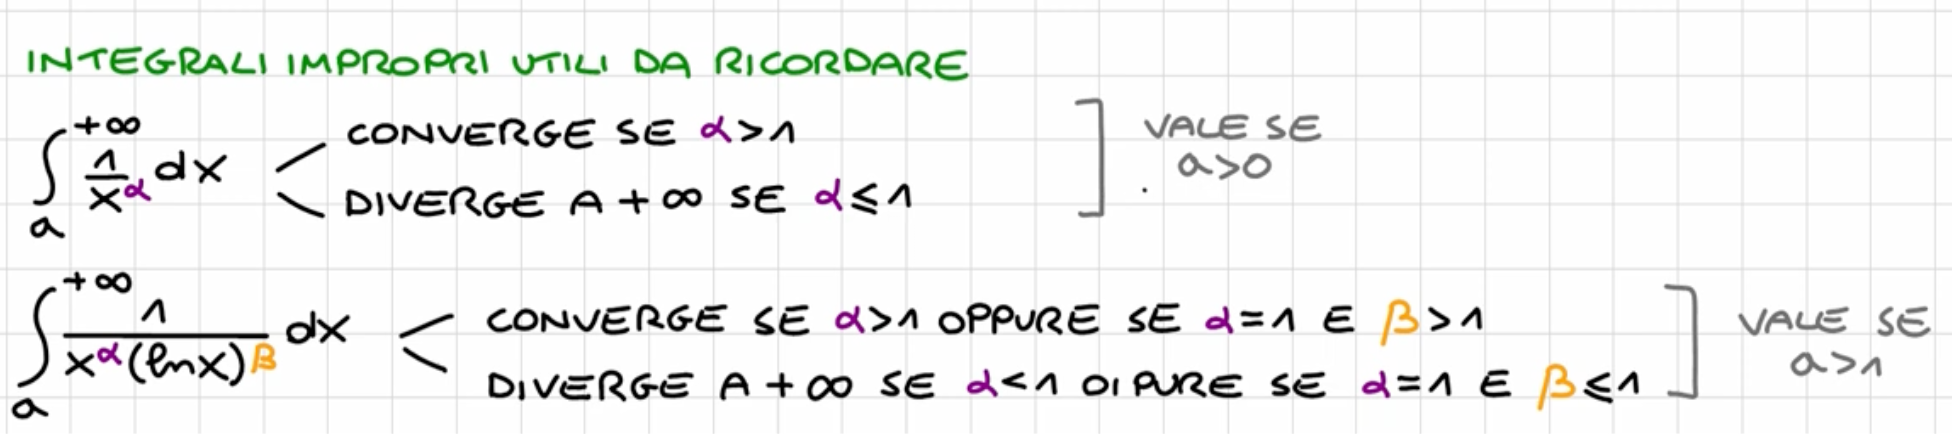 INTEGRALI IMPROPRI UTILI DA RICORDARE
∫_a^{+∞} 1/x^α dx < CONVERGE SE α>1
DIVERGE A +∞ SE α≤1
] VALE SE
a>0
∫_a^{+∞} 1/(x^α (ln x)^β) dx < CONVERGE SE α>1 OPPURE SE α=1 E β>1
DIVERGE A +∞ SE α<1 OIPURE SE α=1 E β≤1
] VALE SE
a>1